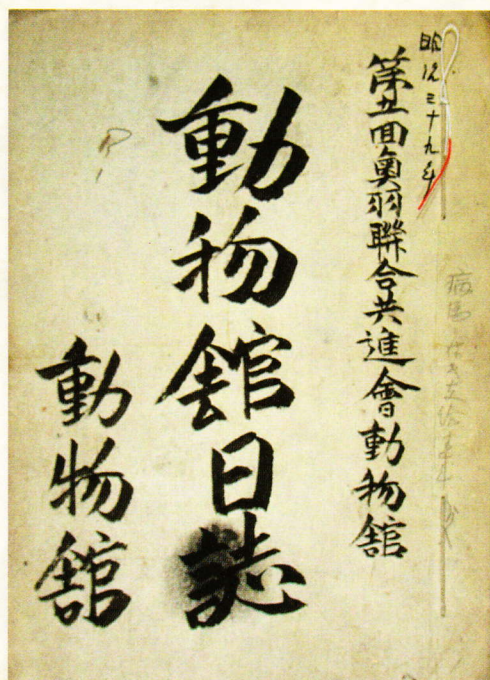 明治三十九年
第五回奥羽聯合共進會動物館
動物舘日誌
動物舘